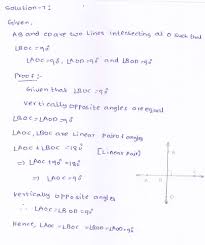 Solution-7:
Given,
AB and CD are two Lines intersecting at O such that
∠BOC = 90°
∠AOC = 90°, ∠AOD = 90° and ∠BOD = 90°
Proof:-
Given that ∠BOC = 90°
Vertically opposite angles are equal
∠BOC = ∠AOD = 90°
∠AOC, ∠BOC are Linear Pair of angles
∠AOC + ∠BOC = 180° [Linear Pair]
⇒ ∠AOC + 90° = 180°
⇒ ∠AOC = 90°
Vertically opposite angles
∴ ∠AOC = ∠BOD = 90°
Hence, ∠AOC = ∠BOC = ∠BOD = ∠AOD = 90°
A
B
O